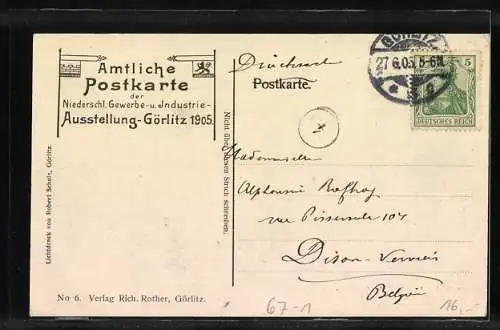 Amtliche
Postkarte
der
Niederschl. Gewerbe- u. Jndustrie-
Ausstellung-Görlitz 1905.
Lichtdruck von Robert Scholz, Görlitz.
No 6. Verlag Rich. Rother, Görlitz.
Nicht über diesen Strich schreiben.
Drucksache
Postkarte.
GÖRLITZ
27 6.05. 5-6N.
5
DEUTSCHES REICH
Mademoiselle
Alphonsine
rue 104
Dison-Verviers
Belgien
67-1
16,-